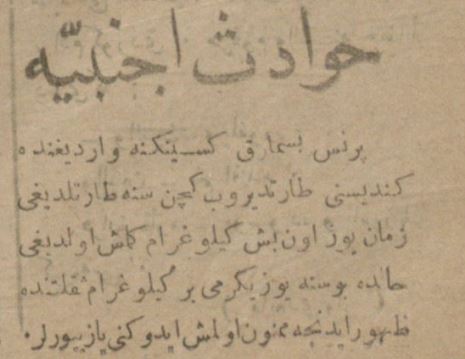 حوادث اجنبیّه
پرنس بسمارق كسینكنه واردیغنده
كندیسنی طارتدیروب كچن سنه طارتلدیغی
زمان یوز اون بش كیلوغرام كلمش اولدیغی
حالده بو سنه یوز یكرمی بر كیلوغرام ثقلتنده
ظهور ایدنجه ممنون اولمش ایدوكنی یازییورلر.